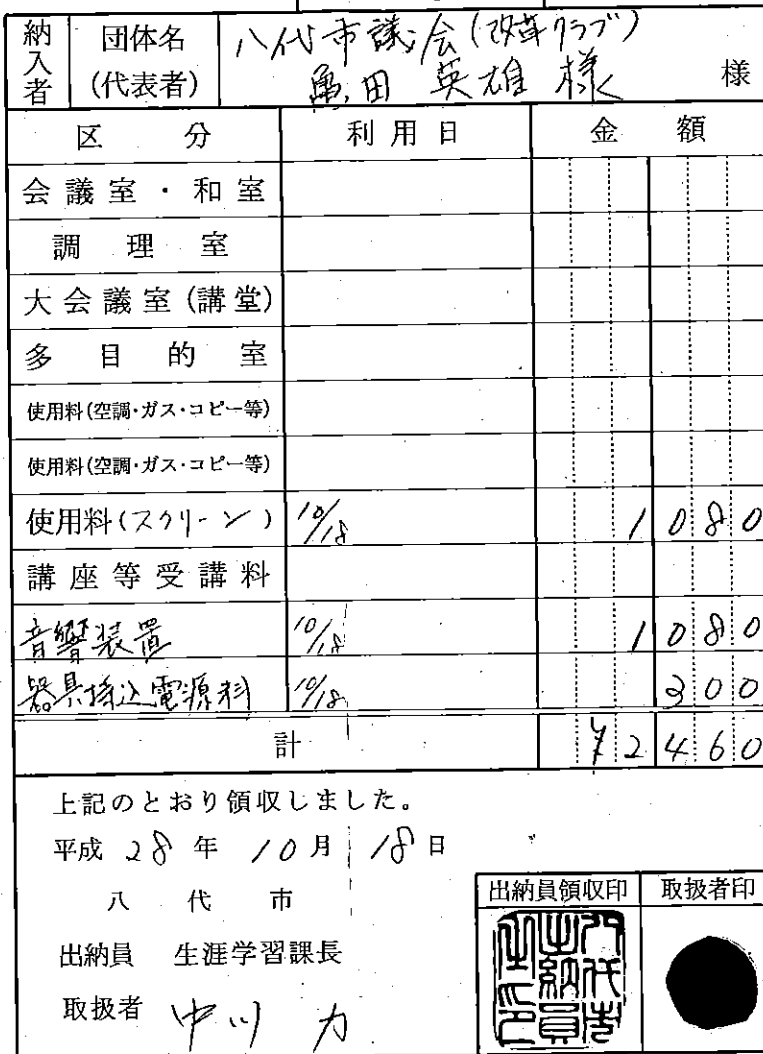 納入者 団体名(代表者) 八代市議会(改革クラブ)
亀田 英雄 様 様
区分 利用日 金額
会議室・和室
調理室
大会議室(講堂)
多目的室
使用料(空調・ガス・コピー等)
使用料(空調・ガス・コピー等)
使用料(スクリーン) 10/18 1080
講座等受講料
音響装置 10/18 1080
器具持込電源料 10/18 300
計 ¥2460
上記のとおり領収しました。
平成 28 年 10 月 18 日
八代市
出納員領収印 取扱者印
出納員 生涯学習課長
取扱者 中川 力
八代市出納員之印